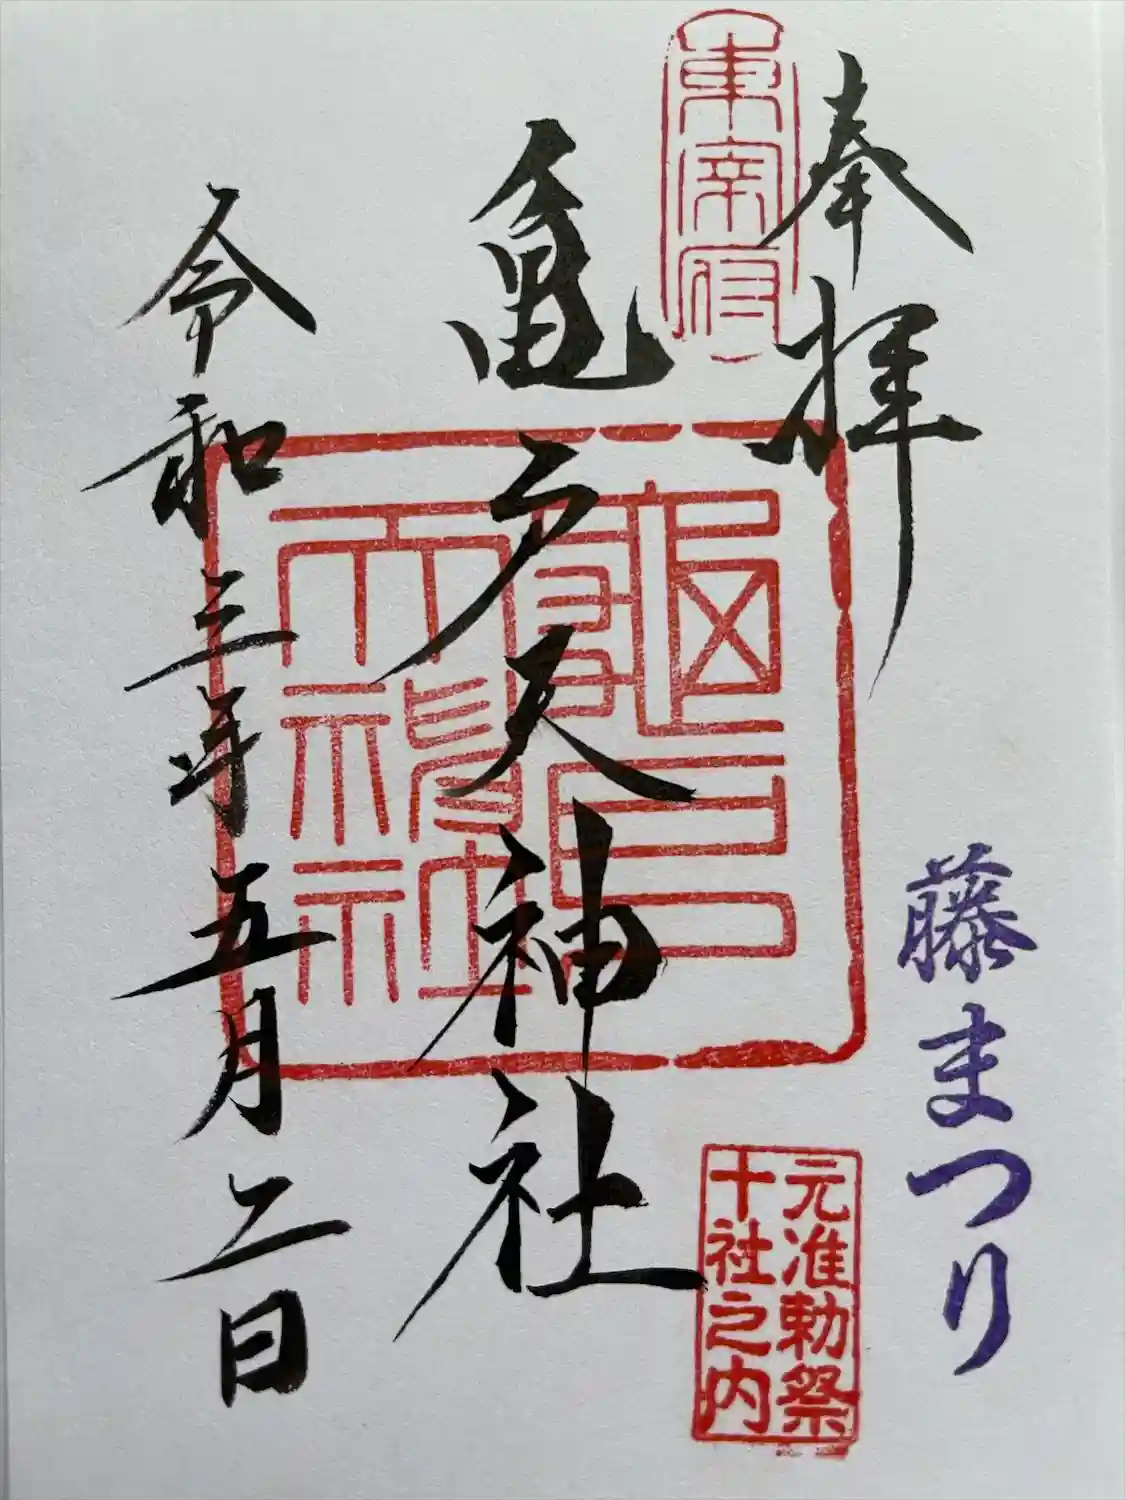 奉拝
東宰府
亀戸天神社
龜戸天神社
令和三年五月二日
藤まつり
元准勅祭
十社之内